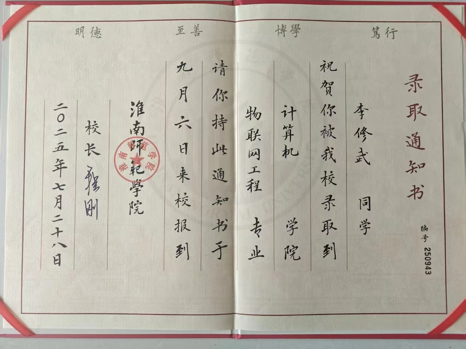 明德 至善 博學 篤行
录取通知书
编号 250943
李修武 同学
祝贺你被我校录取到
计算机 学院
物联网工程 专业
请你持此通知书于
九月六日来校报到
淮南師範學院
校长
二〇二五年七月二十八日